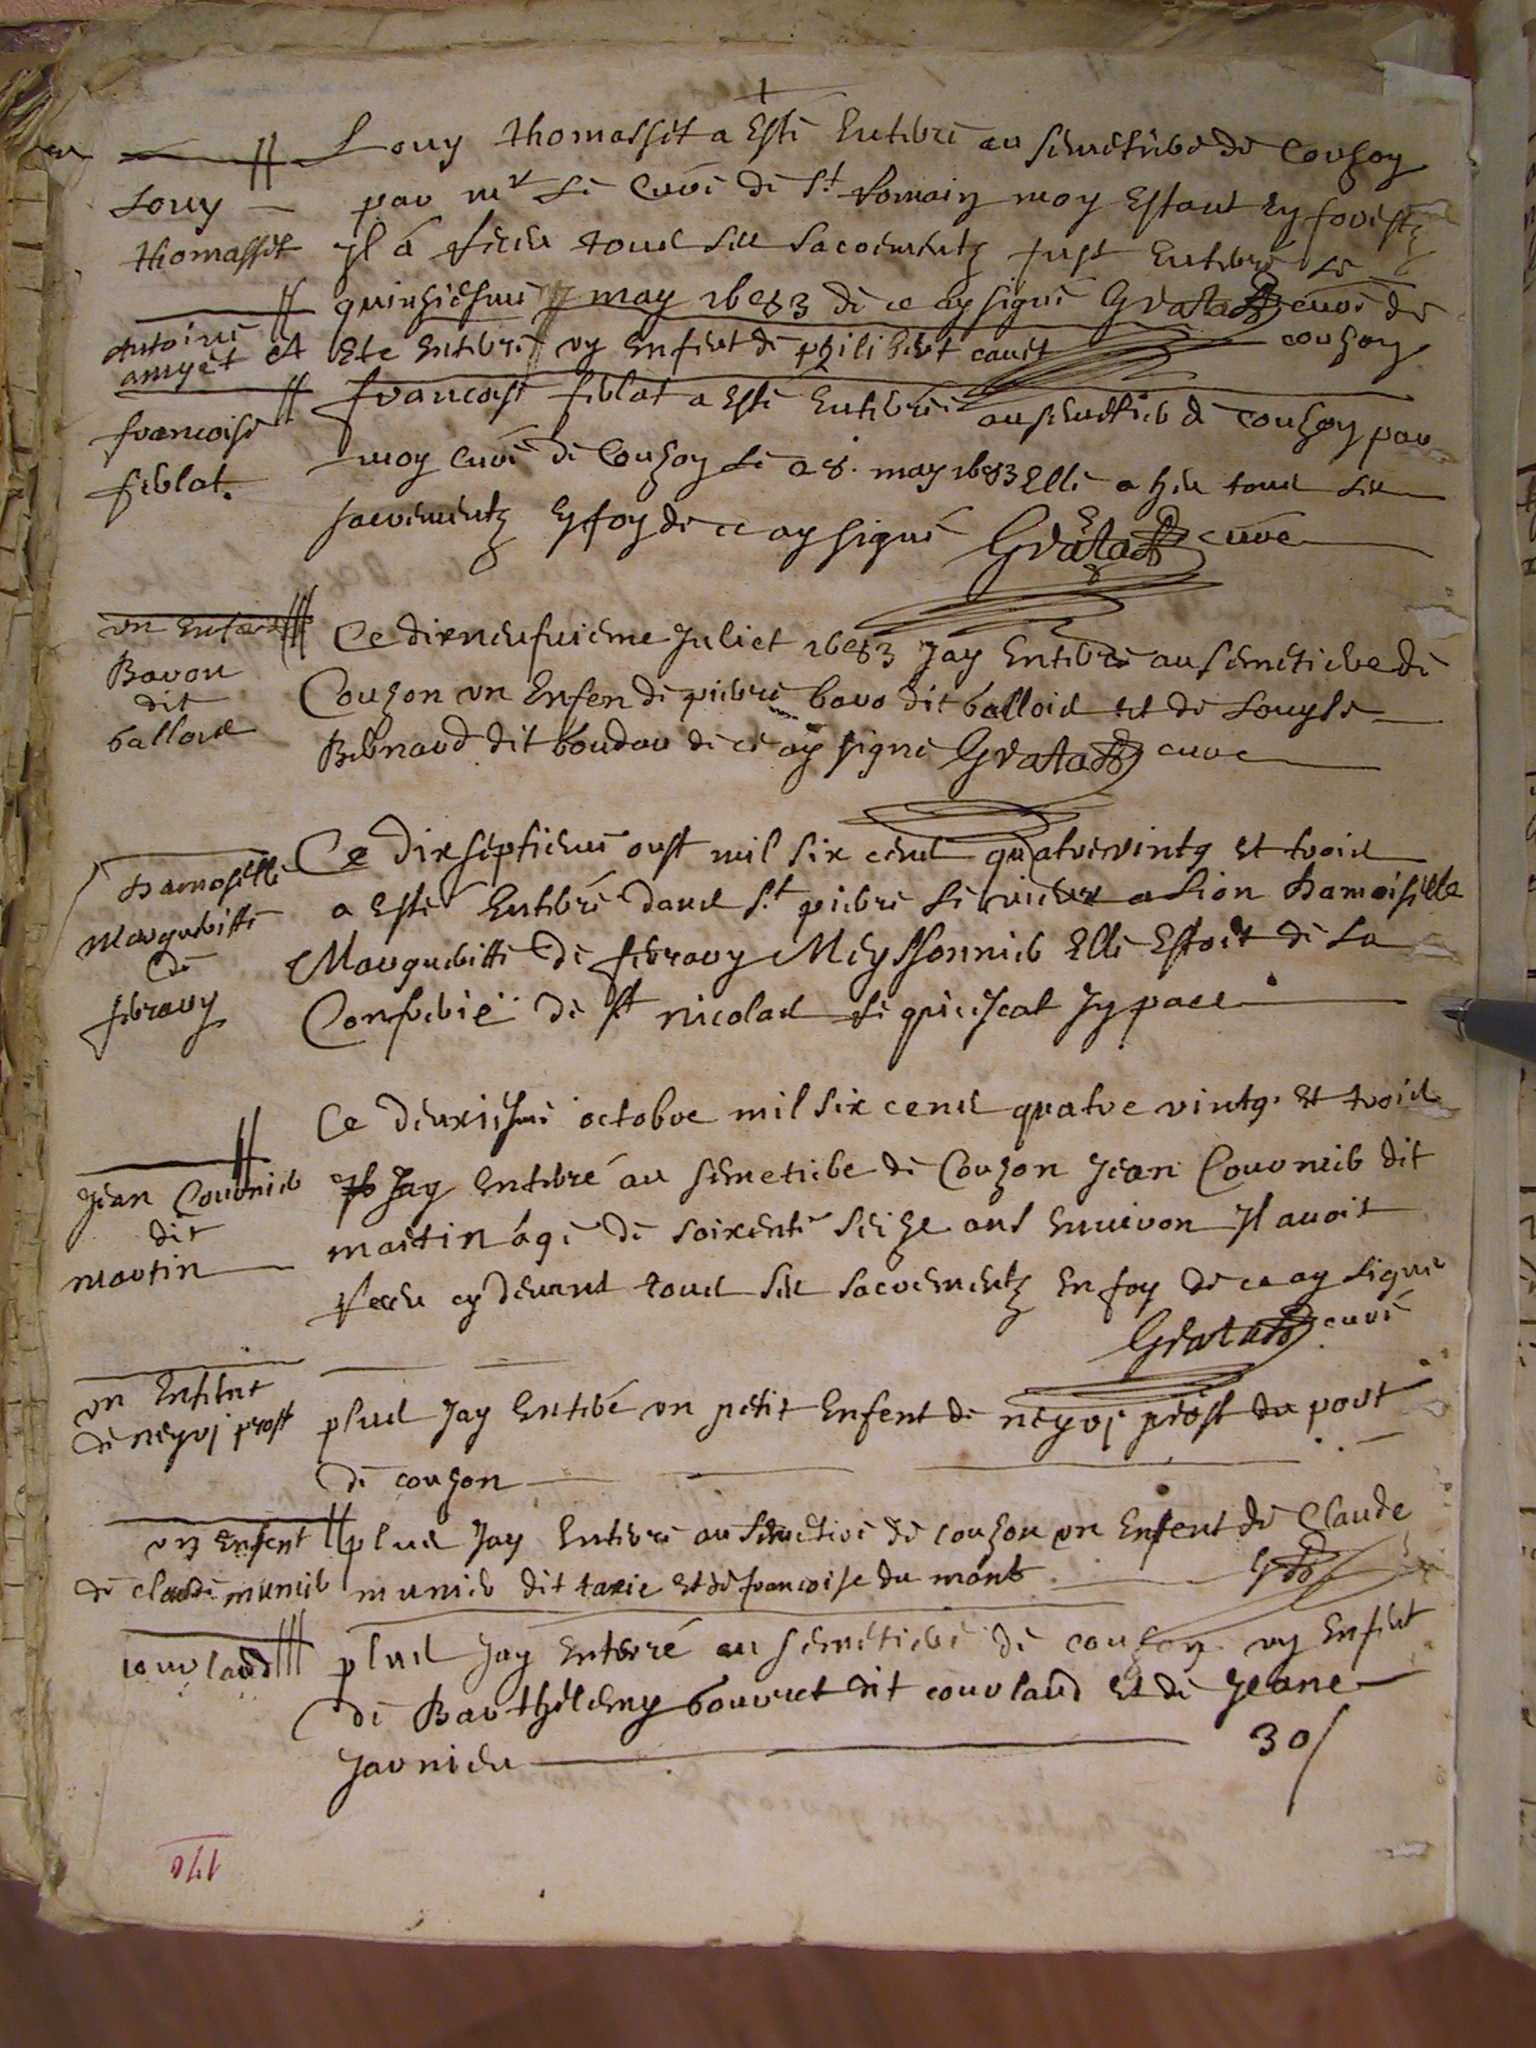 Louy
thomasset
Louy thomasset a Esté Enterré au semetiere de Couzon
par mr Le Curé de st Romain moy Estant En forest
Il á Receu tous Les sacrementz fust Enterré Le
quinziesme may 1683 de ce ay signé Gratta curé de
couzon
Antoine
amyet
Et Ete Enterré un Enfent de philibert
francoise
feblat.
francoise feblat a Esté Enterréé au semetiere de Couzon par
moy Curé de Couzon Le 28. may 1683 Elle a heu tous Les
sacrementz En foy de ce ay signé Gratta curé
un Enfant
Baron
dit
ballois
Ce dixneufvieme Juliet 1683 Jay Enterré au semetiere de
Couzon un Enfen de pierre baro dit ballois et de Louyse
Bernard dit boudar de ce ay signé Gratta curé
Damoiselle
Margueritte
de
ferrary
Ce dixseptieme oust mil six cens quatrevintg et trois
a Esté Enterré dans st pierre Le vieux a Lion Damoiselle
Margueritte de ferrary Meyssonnier Elle Estoit de La
Confrerië de st nicolas Requiescat In pace
Jean Couronier
dit
martin
Ce deuxiesme octobre mil six cens quatre vintg. et trois
Jay Enterré au semetiere de Couzon Jean Couronier dit
martin ágé de soixente seize ans Enuiron Il auoit
Receu cy deuant tous Les sacrementz En foy de ce ay signé
Gratta curé
un Enfent
de neyvj prost
plus Jay Enterré un petit Enfent de neyvj prost du port
de couzon
un Enfent
de claude munier
plus Jay Enterré au semetiere de couzon un Enfent de Claude
munier dit taxie et de francoise du mont
courland
plus Jay Enterré au semetiere de couzon un Enfent
de Barthelemy bouvret dit courland et de Jeane
Jarnieu 30
170